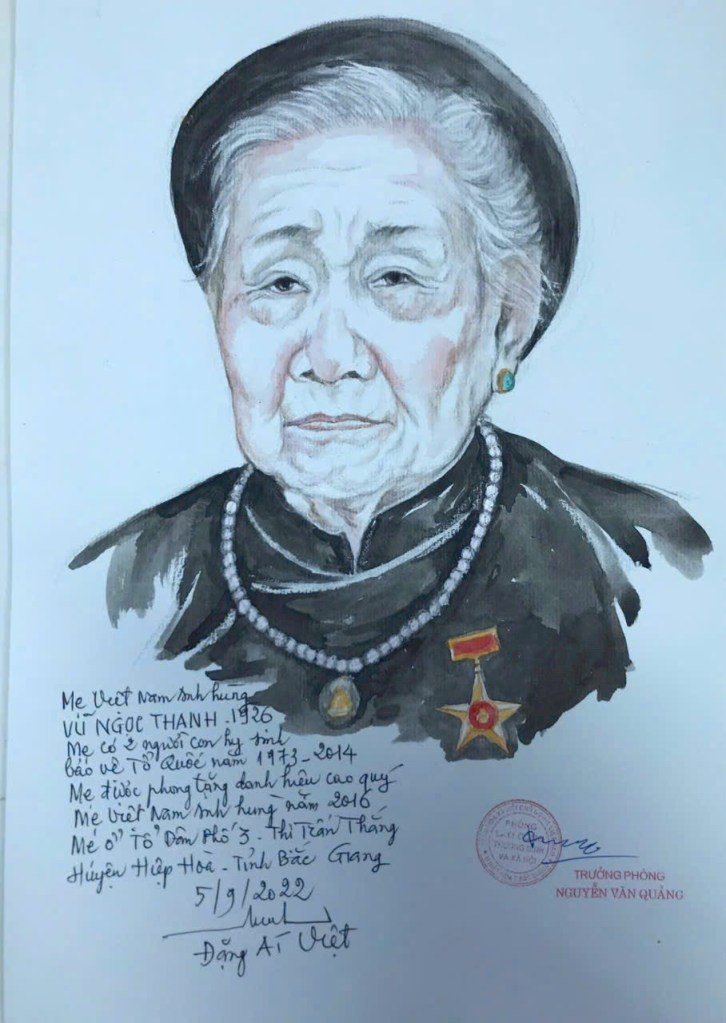 Mẹ Việt Nam anh hùng
VŨ NGỌC THANH . 1926
Mẹ có 2 người con hy sinh
bảo vệ Tổ Quốc năm 1973 - 2014
Mẹ được phong tặng danh hiệu cao quý
Mẹ Việt Nam anh hùng năm 2016
Mẹ ở Tổ Dân Phố 3. Thị Trấn Thắng
Huyện Hiệp Hoà - Tỉnh Bắc Giang
5/9/2022
Đặng Ái Việt
PHÒNG
LAO ĐỘNG
THƯƠNG BINH
VÀ XÃ HỘI
TRƯỞNG PHÒNG
NGUYỄN VĂN QUẢNG